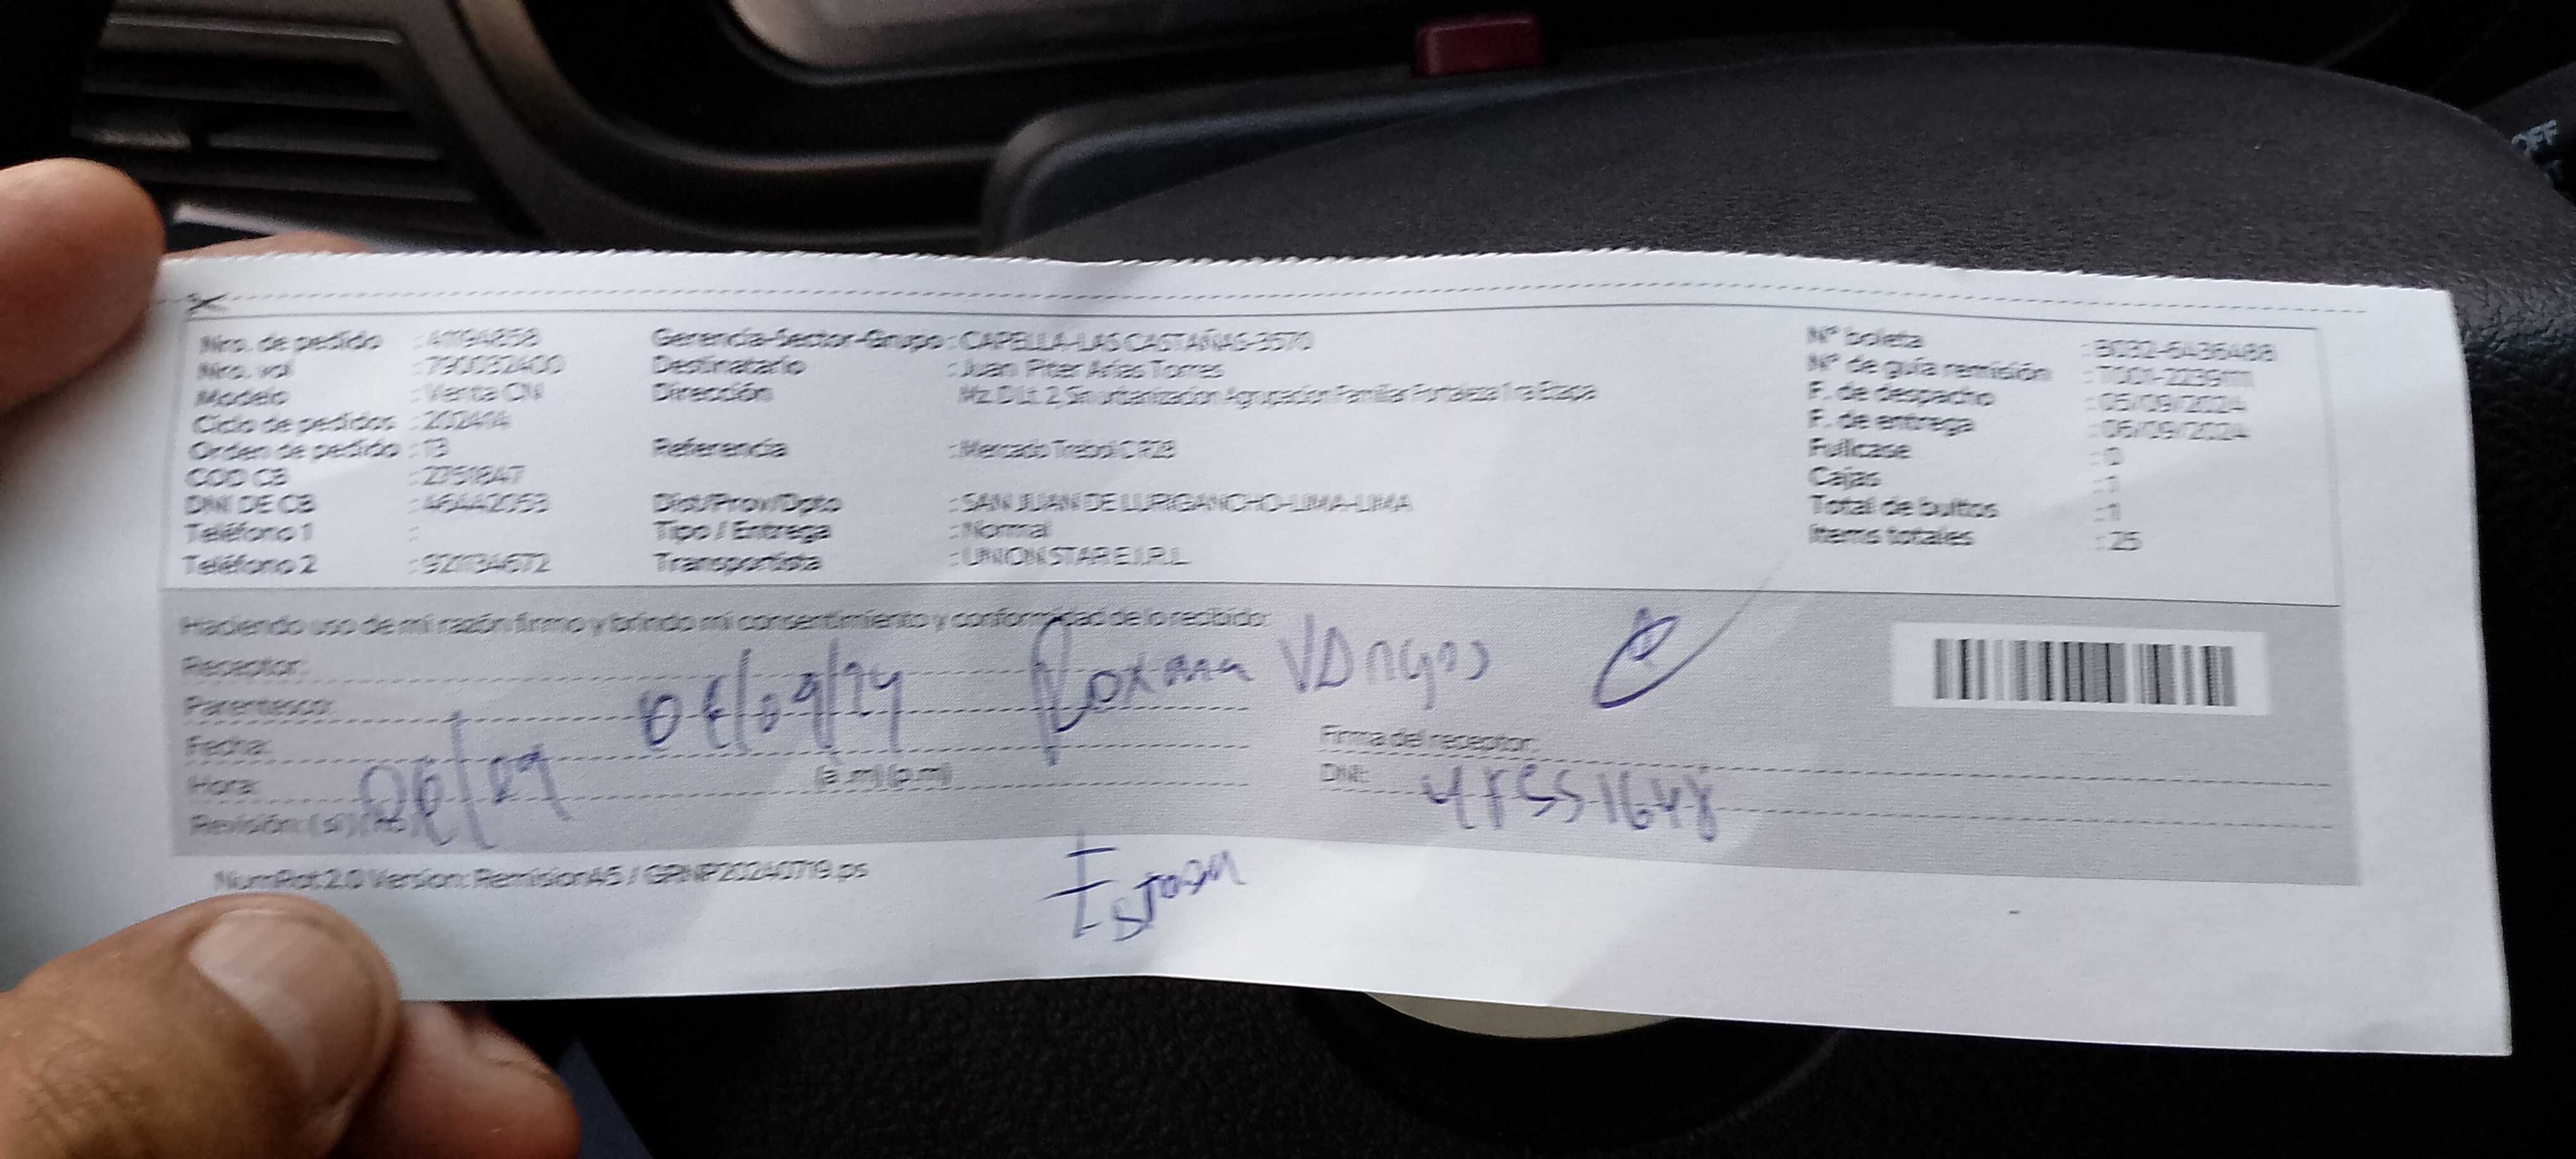 Nro. de pedido : 41194858
Nro. vol : 790032400
Modelo : Venta CN
Ciclo de pedidos : 202414
Orden de pedido : 13
COD CB : 2751847
DNI DE CB : 46442053
Teléfono 1 :
Teléfono 2 : 921134672
Gerencia-Sector-Grupo : CAPELLA-LAS CASTAÑAS-3570
Destinatario : Juan Piter Arias Torres
Dirección : Mz. D Lt. 2, Sin urbanización Agrupacion Familiar Fortaleza 1ra Etapa
Referencia : Mercado Trebol CR28
Dist/Prov/Dpto : SAN JUAN DE LURIGANCHO-LIMA-LIMA
Tipo / Entrega : Normal
Transportista : UNION STAR E.I.R.L.
N° boleta : B032-6436488
N° de guía remisión : T001-2239111
F. de despacho : 05/09/2024
F. de entrega : 06/09/2024
Fullcase : 0
Cajas : 1
Total de bultos : 1
Items totales : 25
Haciendo uso de mi razón firmo y brindo mi consentimiento y conformidad de lo recibido:
Receptor:
Parentesco:
06/09/24 Roxana Vargas
Fecha:
Hora: (a.m) (p.m)
06/09
Revisión: (si) (no)
Firma del receptor:
DNI: 48551648
NumRot 2.0 Version: Remision45 / GRNP20240719.ps